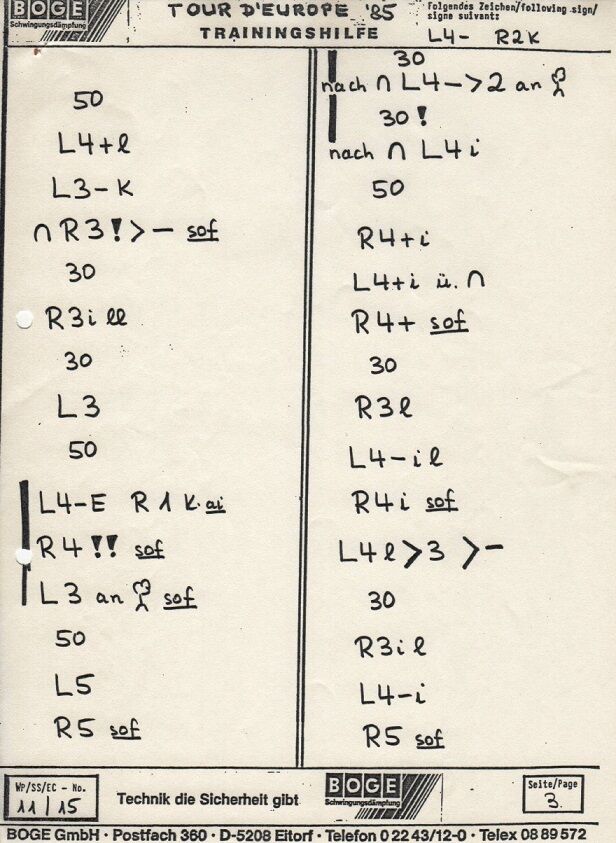 BOGE
Schwingungsdämpfung
TOUR D'EUROPE '85
TRAININGSHILFE
folgendes Zeichen/following sign/
signe suivant:
L4- R2K
50
L4+l
L3-K
∩ R3!>- sof
30
R3i ll
30
L3
50
L4-E R1K ai
R4!! sof
L3 an sof
50
L5
R5 sof
30
nach ∩ L4->2 an
30!
nach ∩ L4i
50
R4+i
L4+i ü. ∩
R4+ sof
30
R3l
L4-il
R4i sof
L4l>3 >-
30
R3il
L4-i
R5 sof
WP/SS/EC - No.
11/15
Technik die Sicherheit gibt
BOGE
Schwingungsdämpfung
Seite/Page
3.
BOGE GmbH · Postfach 360 · D-5208 Eitorf · Telefon 0 22 43/12-0 · Telex 08 89 572